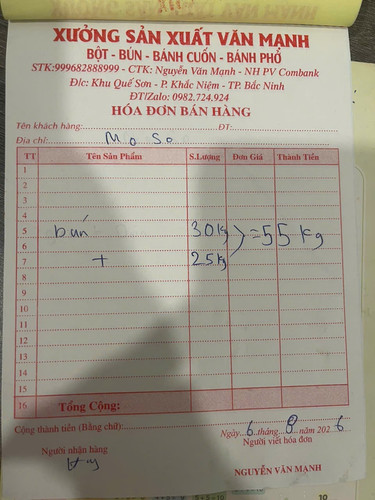 XƯỞNG SẢN XUẤT VĂN MẠNH
BỘT - BÚN - BÁNH CUỐN - BÁNH PHỞ
STK:999682888999 - CTK: Nguyễn Văn Mạnh - NH PV Combank
Đ/c: Khu Quế Sơn - P. Khắc Niệm - TP. Bắc Ninh
ĐT/Zalo: 0982.724.924
HÓA ĐƠN BÁN HÀNG
Tên khách hàng: ĐT:
Địa chỉ: Mo So
TT Tên Sản Phẩm S.Lượng Đơn Giá Thành Tiền
1
2
3
4
5 bún 30kg
6 = 55 kg
7 + 25kg
8
9
10
11
12
13
14
15
16 Tổng Cộng:
Cộng thành tiền (Bằng chữ):
Ngày 6 tháng 8 năm 202 6
Người nhận hàng Người viết hóa đơn
NGUYỄN VĂN MẠNH